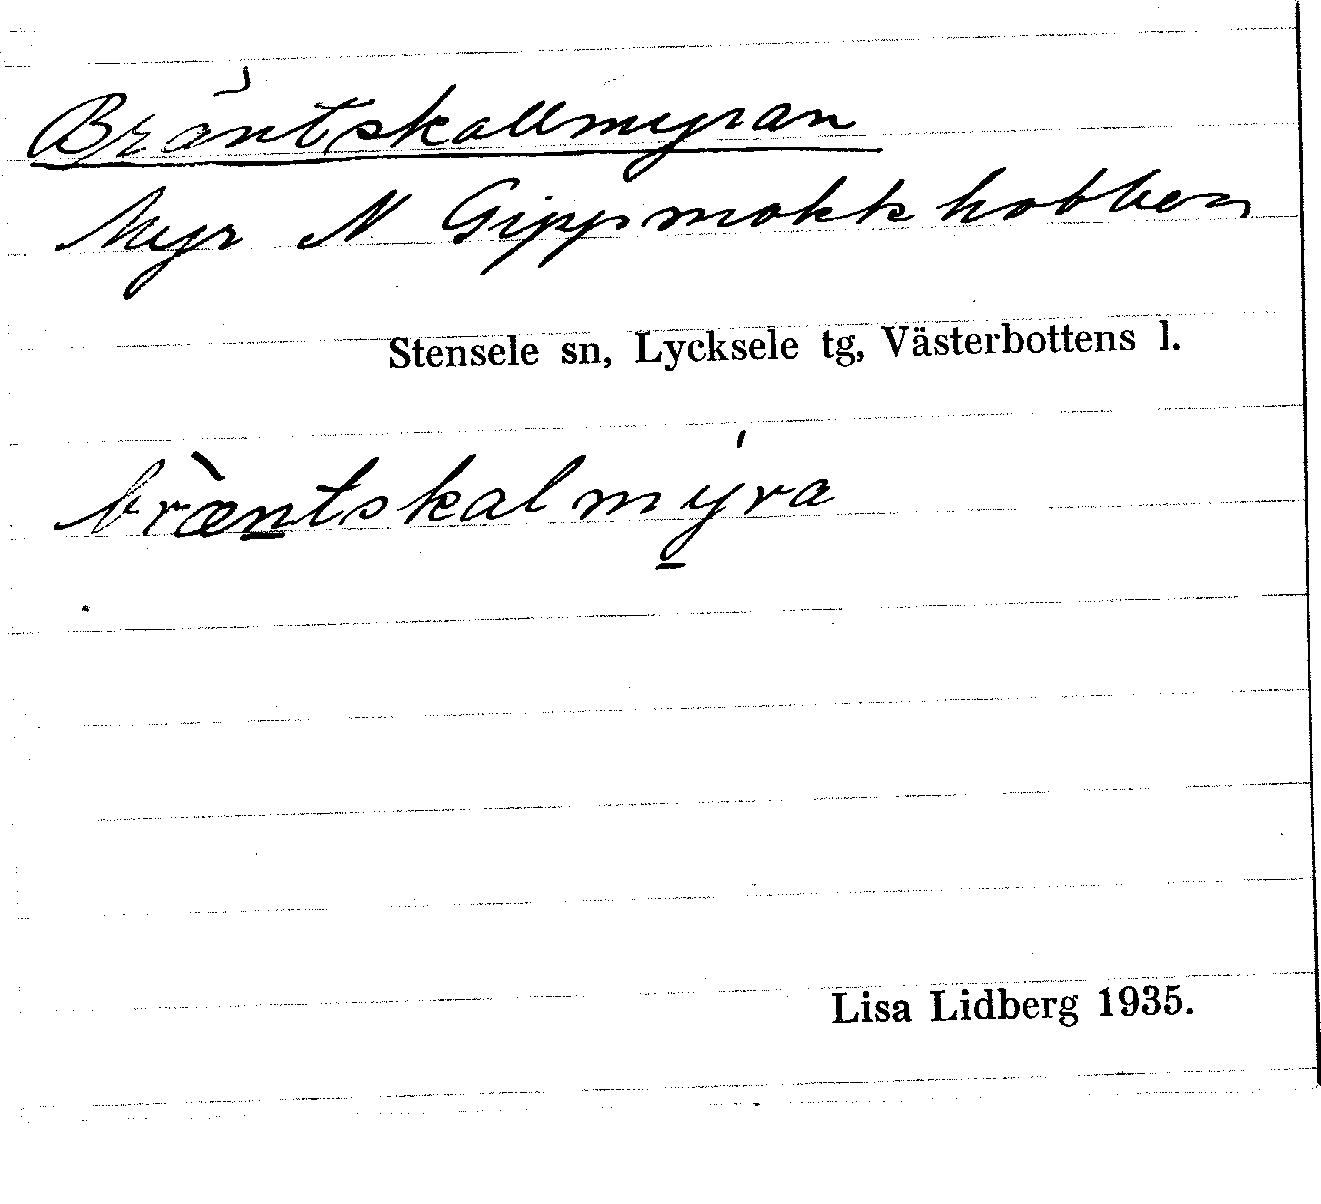 Bräntskallmyran
Myr N Gippmokkhobben
Stensele sn, Lycksele tg, Västerbottens l.
bræ̀ntskalmýra
Lisa Lidberg 1935.